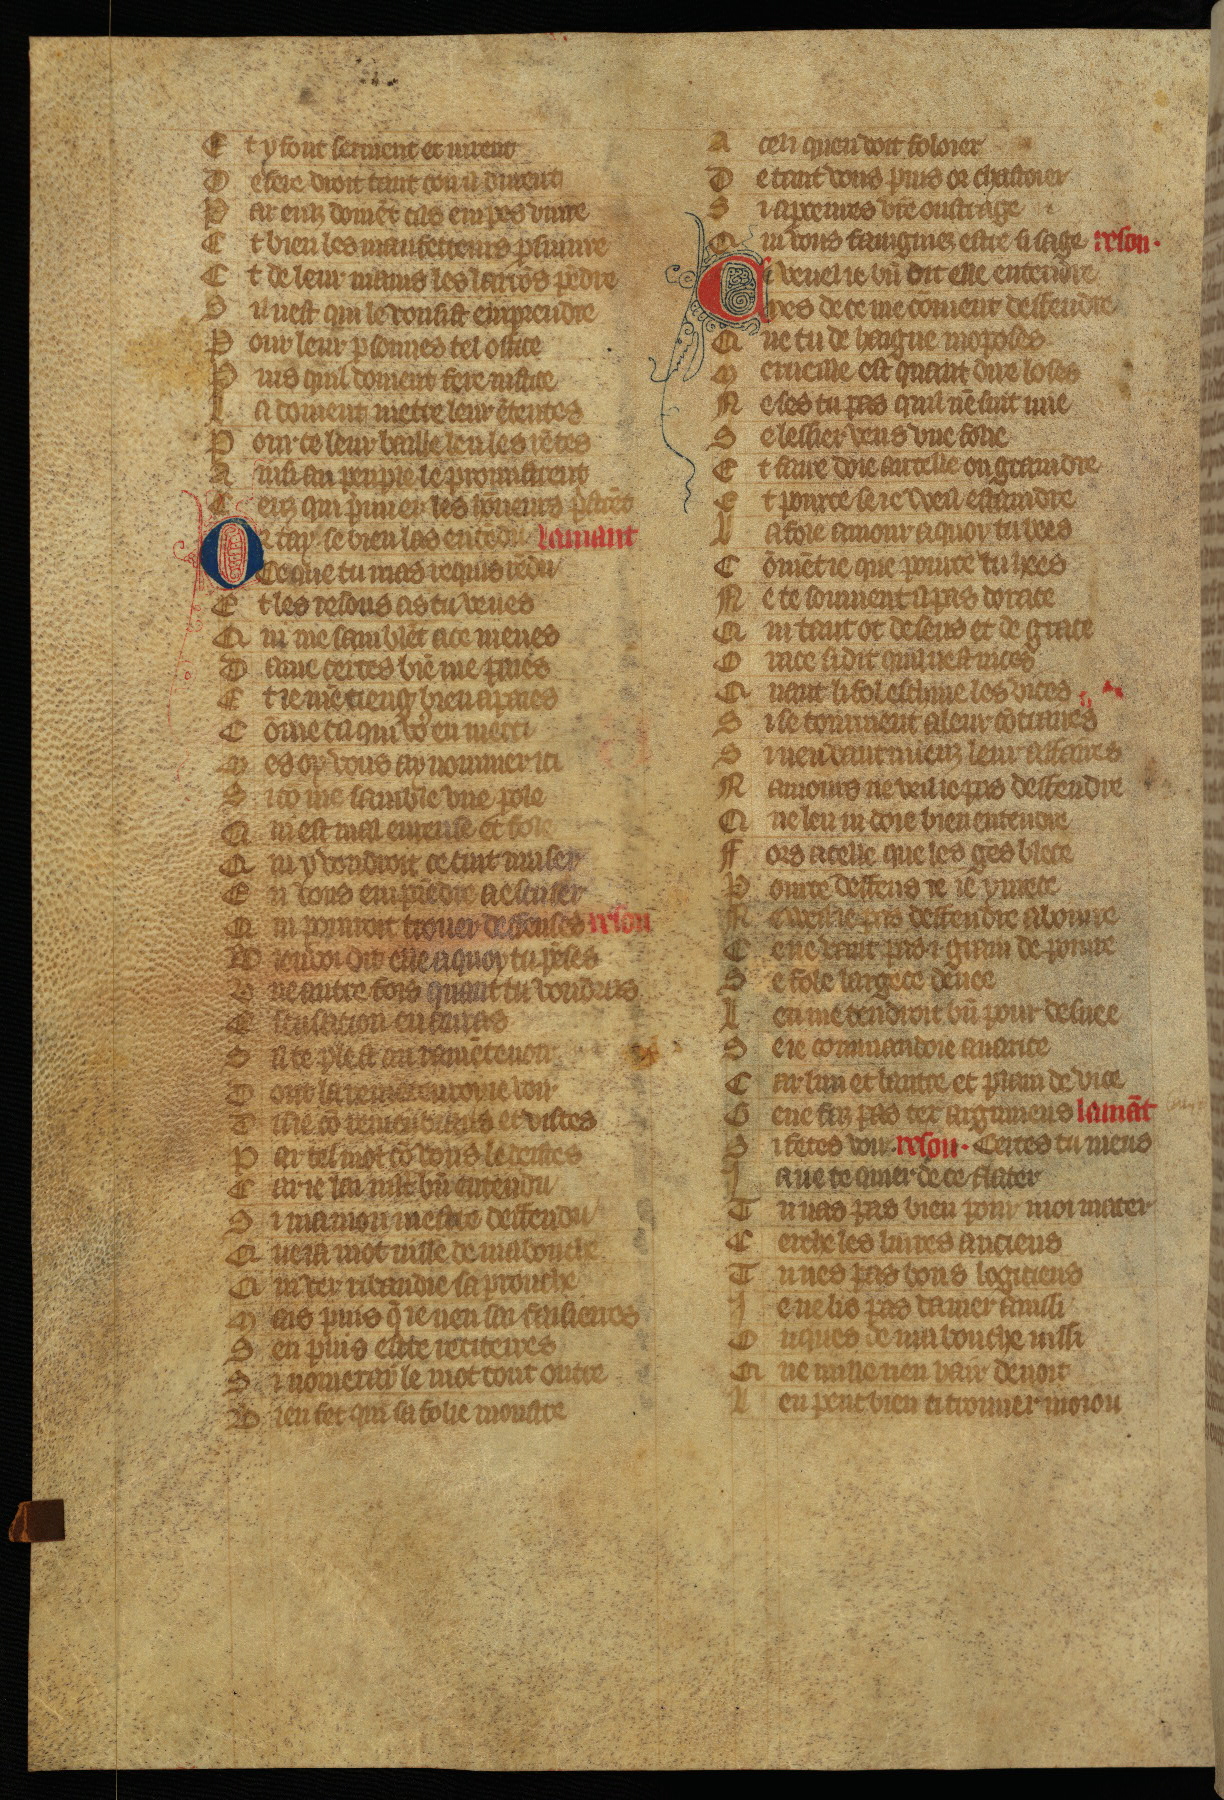 E t y font serment et iurent
D e fere droit tant con il durent
P ar eulz doner̄t cas en pes viure
E t bien les maufetteurs p̄suiure
E t de leur mains les larrōs pēdre
S il nest qui le vousist emprendre
P our leur p̄sonnes tel office
P uis quil doiuent fere iustice
L a doiuent mettre leur ētentes
P our ce leur baille len les rētes
A insi au peuple le promistrent
C eulz qui p̄mier les honeurs p̄strēt
O r tay se bien las entēdu lamant
Ce que tu mas requis rēdu
E t les resons as tu veues
Q ui me samblēt a ce meues
D ame certes biē me paiés
E t ie mē tieng bien a paiés
C ōme cil qui vō en merci
M es or vous ay nommer ici
S i cō me samble vne pole
Q ui est mal enrense et fole
Q ui y voudroit ce cuit muser
E n vous emprēdre a escuser
Q ui pourroit trouer deffenses reson
B ien voi dit elle a quoy tu pēses
V ne autre fois quant tu voudras
E scusation en auras
S il te plest au ramēteuoir
D ont la remētenroi ie voir
D is ie cō remembrans et vistes
P ar tel mot cō vous le deistes
C ar ie lai mlt bn̄ entendu
S i ma mon mestre deffendu
Q ue ia mot nisse de ma bouche
Q ui de ribaudie saprouche
M ais puis q̄ ie nen sui faisierres
S en puis estre recitierres
S i nomeray le mot tout outre
B ien fet qui sa folie moustre
A celi quen voit foloier
D e tant vous puis or chastoier
S i aperceures vr̄e oustrage
Q ui vous faingniez estre si sage reson.
C e veuel ie bn̄ dit elle entendre
Mes de ce me couient deffendre
Q ue tu de haigne moposes
M erueille est quant dire loses
N e ses tu pas quil ne suit mie
S e lessier veus vne folie
E t faire doie autelle ou graindre
E t pource se ie vueil estaindre
L a fole amour a quoy tu bees
C ōment ie que pource tu hees
N e te souuient il pas dorace
Q ui tant ot de sens et de grace
O race si dit qui nest nices
Q uant li fol eschiue les vices
S i se tournent a leur cōtraires
S i nen vaut mieuz leur affaires
N amours ne veil ie pas deffendre
Q ne len ni doie bien entendre
F ors a celle que les gēs blece
P ource deffens ie se yurece
N e veil ie pas deffendre aboiure
C e ne vaut pas .i. grain de poiure
S e fole largece deuee
L en me tendroit bn̄ pour desuee
S e ie commandoie auarice
C ar lun et lautre et plain de vice
G e ne faz pas tex argumens lamāt
S i fetes voir. reson. Certes tu mens
J a ne te quier de ce flater
T u nas pas bien pour moi mater
C erchie les liures anciens
T u nes pas bons logiciens
J e ne lis pas damer ainssi
O nques de ma bouche nissi
Q ue nulle rien hair devoit
L en peut bien ci trouuer moiou